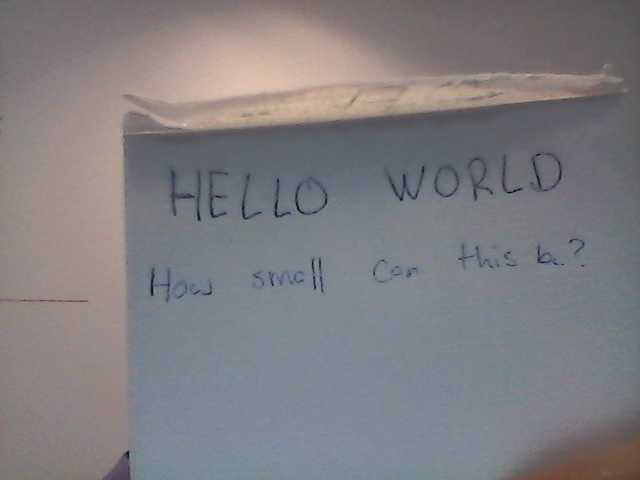 HELLO WORLD
How small can this be?